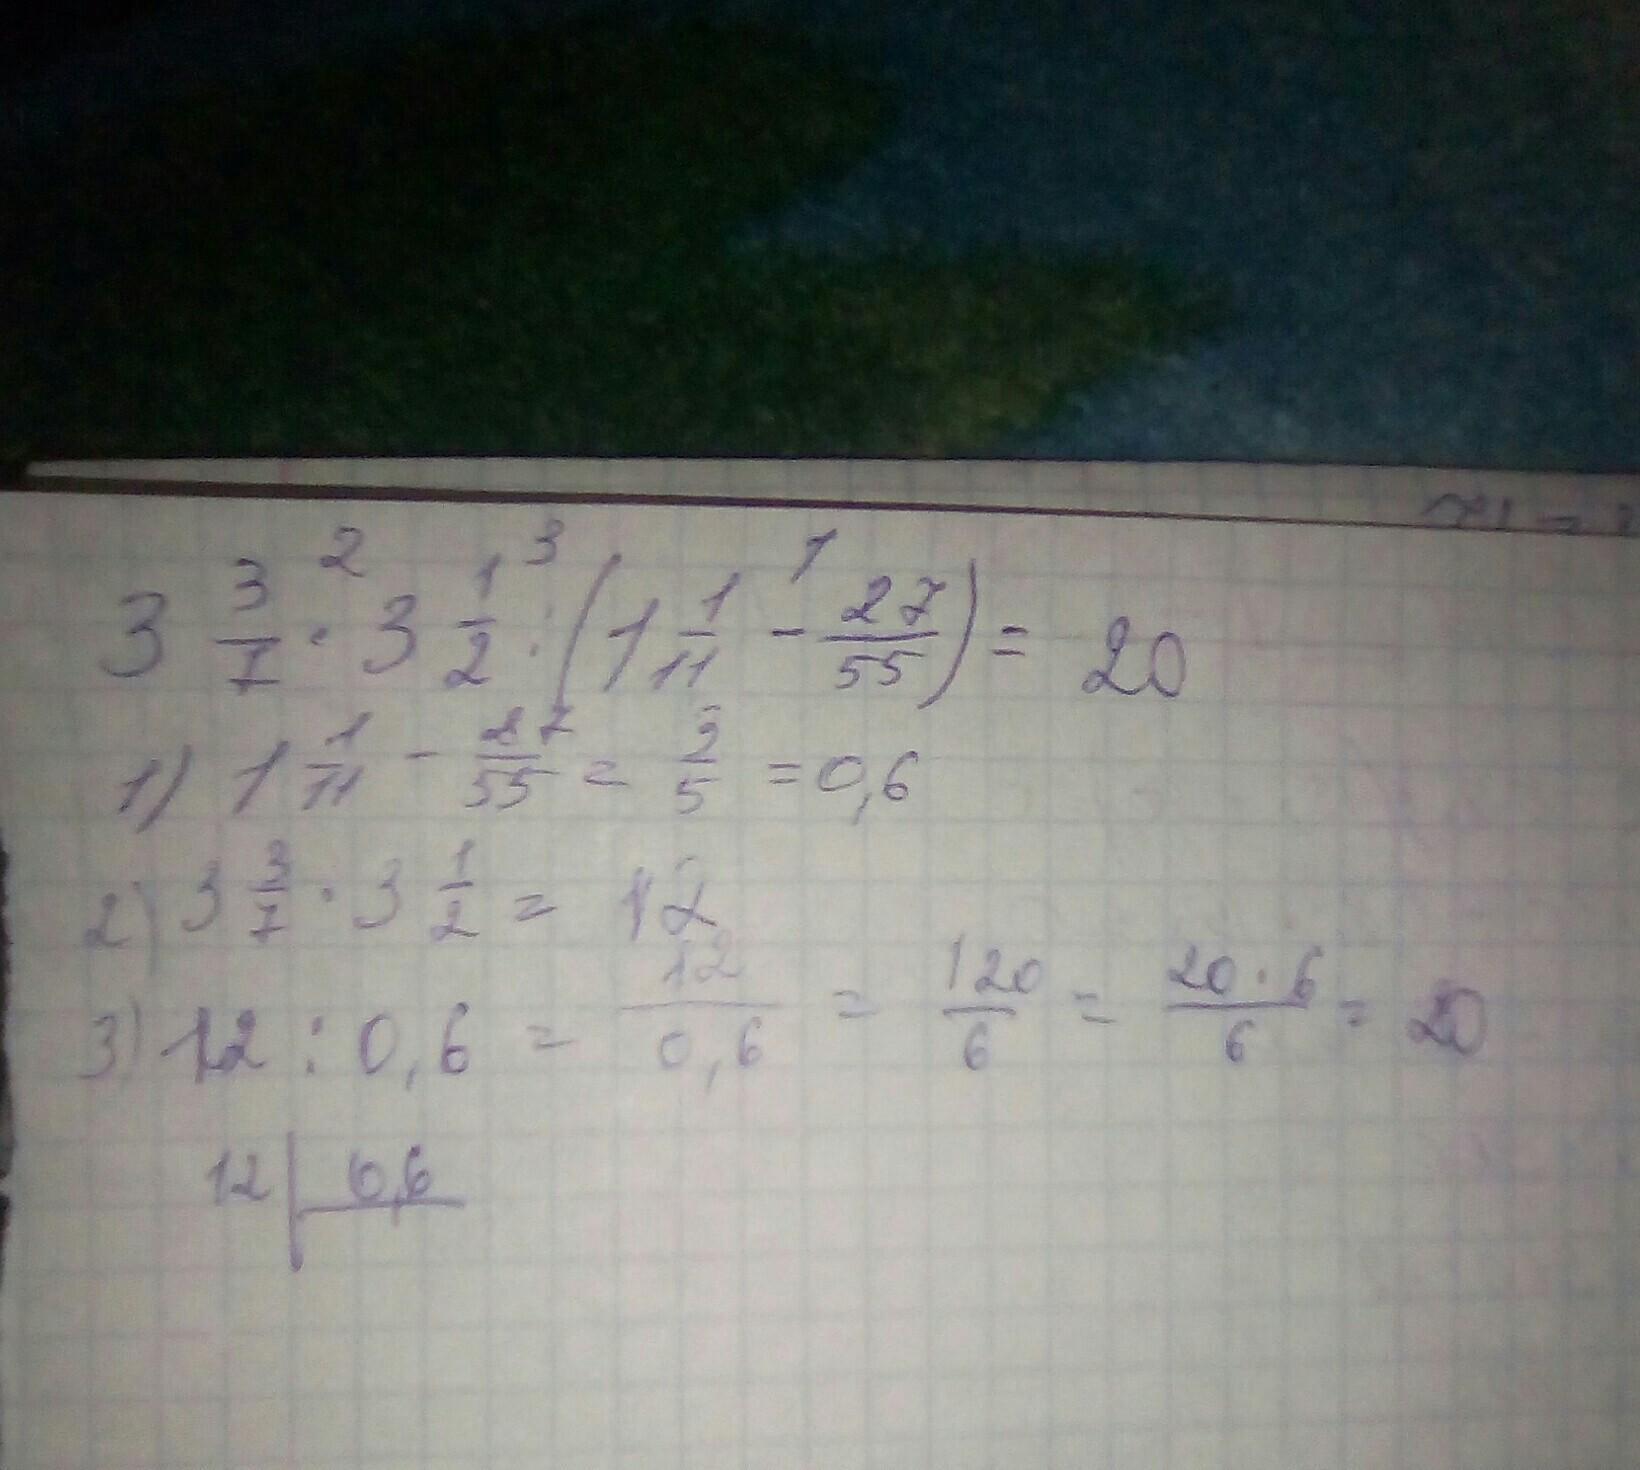 3 3/7 · 3 1/2 : (1 1/11 - 27/55) = 20
1) 1 1/11 - 27/55 = 3/5 = 0,6
2) 3 3/7 · 3 1/2 = 12
3) 12 : 0,6 = 12/0,6 = 120/6 = 20·6/6 = 20
12 | 0,6